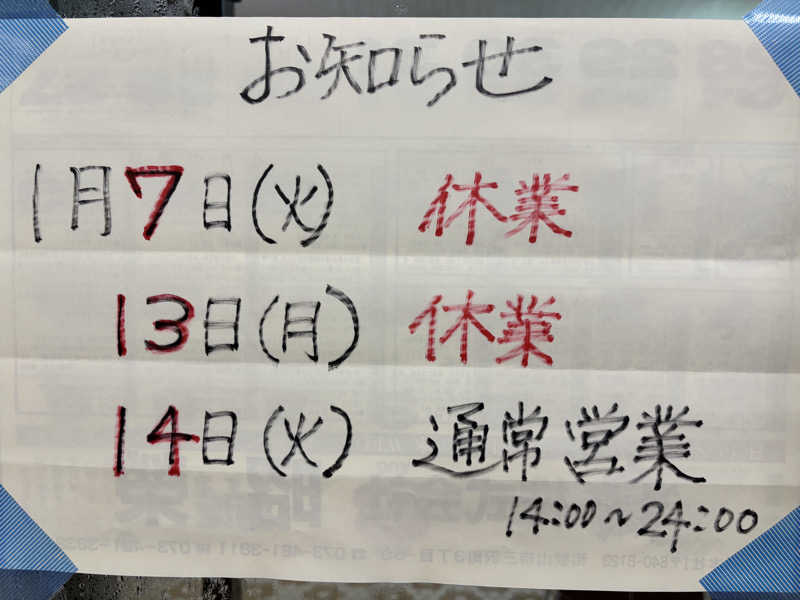 お知らせ
1月7日(火) 休業
13日(月) 休業
14日(火) 通常営業
14:00~24:00